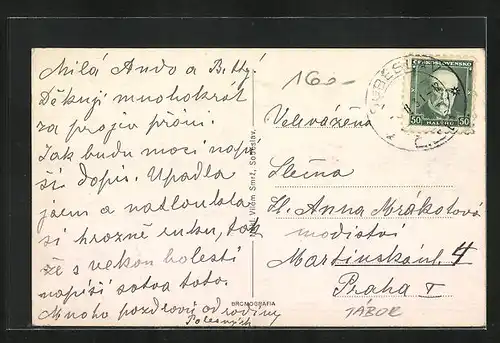 Milá Ando a Betty!
Děkuji mnohokrát
za projev přání.
Jak budu moci napí
ši dopis. Upadla
jsem a natloukla
si hrozně ruku, tak
že s velkou bolestí
napíši sotva toto.
Mnoho pozdravů od rodiny
Polesných
Nakl. Vilém Smrž, Soběslav.
BROMOGRAFIA
160-
SOBĚSL
ČESKOSLOVENSKO
50 HALÉŘŮ 50
Velevážená
Slečna
Sl. Anna Mrákotová
modiství
Martinská ul. 4
Praha I
TÁBOR